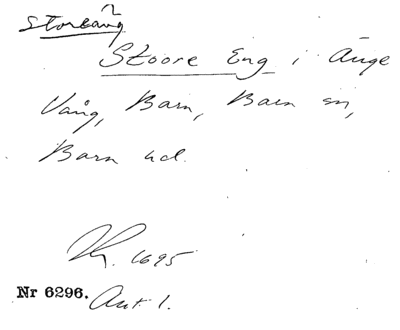 Storäng
Stoore Eng i Änge
Vång, Barn, Barn sn,
Barn hd.
1695
Nr 6296. Akt 1.